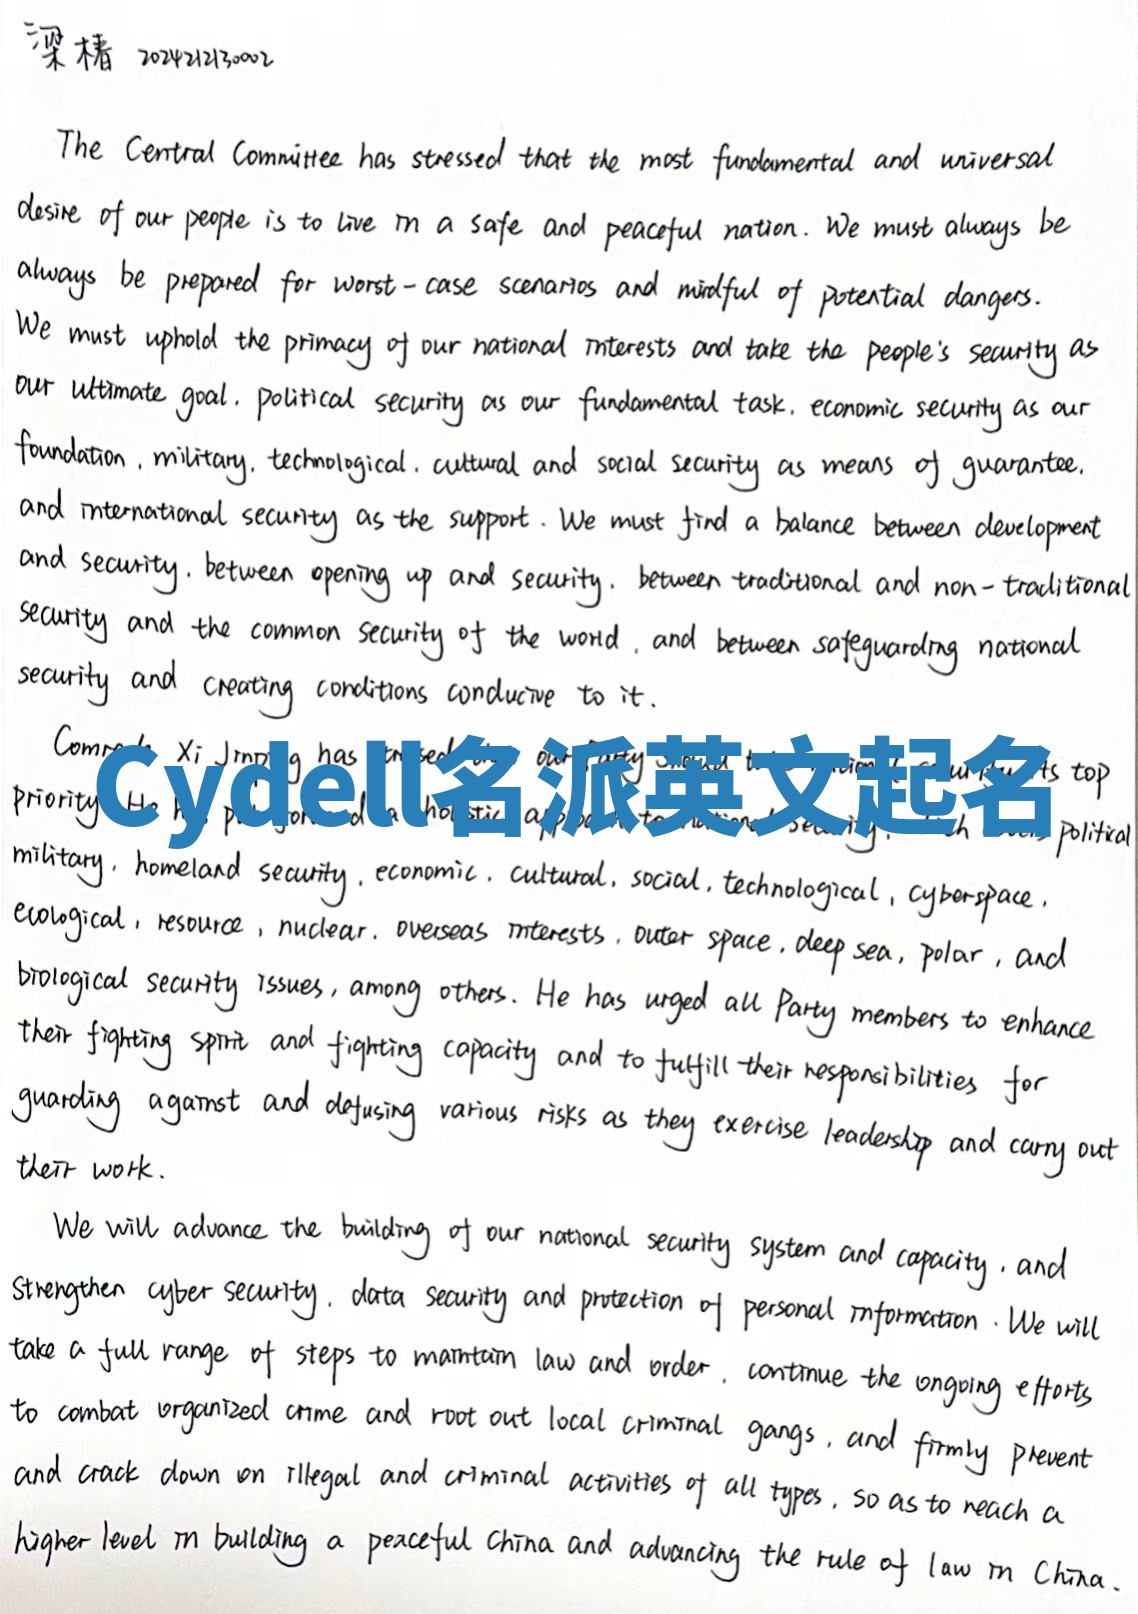 梁椿 2024212130002
The Central Committee has stressed that the most fundamental and universal
desire of our people is to live in a safe and peaceful nation. We must always be
always be prepared for worst-case scenarios and mindful of potential dangers.
We must uphold the primacy of our national interests and take the people's security as
our ultimate goal, political security as our fundamental task, economic security as our
foundation, military, technological, cultural and social security as means of guarantee,
and international security as the support. We must find a balance between development
and security, between opening up and security, between traditional and non-traditional
security and the common security of the world, and between safeguarding national
security and creating conditions conducive to it.
Xi Jinping has our Party top
Cydell名派英文起名
priority. He a holistic to national security, political
military, homeland security, economic, cultural, social, technological, cyberspace,
ecological, resource, nuclear, overseas interests, outer space, deep sea, polar, and
biological security issues, among others. He has urged all Party members to enhance
their fighting spirit and fighting capacity and to fulfill their responsibilities for
guarding against and defusing various risks as they exercise leadership and carry out
their work.
We will advance the building of our national security system and capacity, and
strengthen cyber security, data security and protection of personal information. We will
take a full range of steps to maintain law and order, continue the ongoing efforts
to combat organized crime and root out local criminal gangs, and firmly prevent
and crack down on illegal and criminal activities of all types, so as to reach a
higher level in building a peaceful China and advancing the rule of law in China.